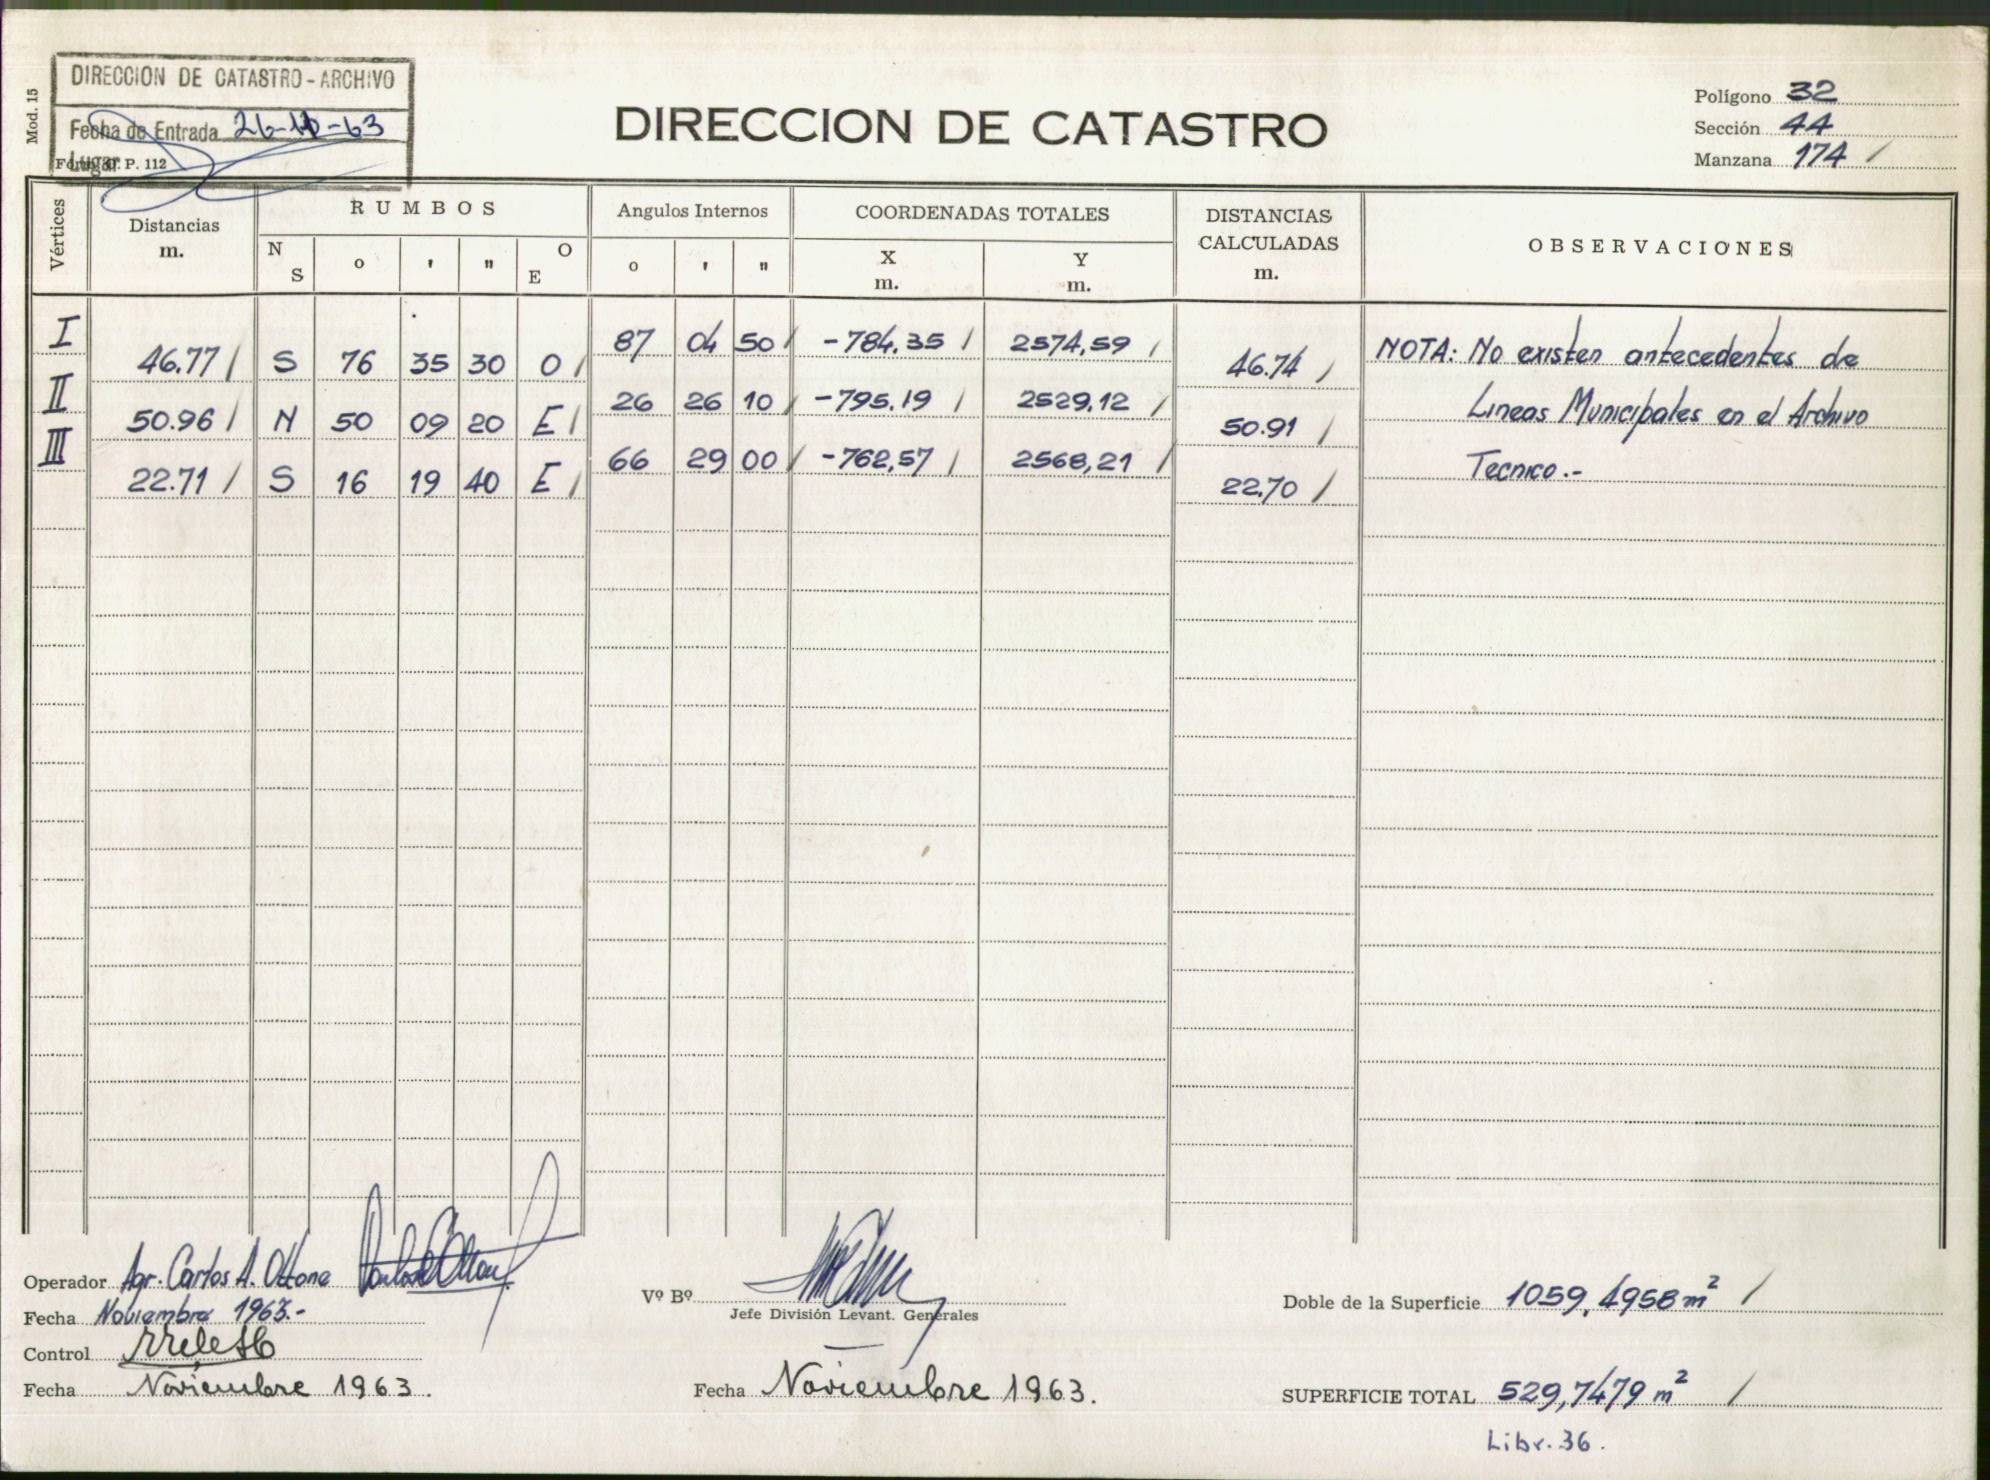 DIRECCION DE CATASTRO - ARCHIVO
Fecha de Entrada 26-10-63
Lugar
Mod. 15
P. 112
DIRECCION DE CATASTRO
Polígono 32
Sección 44
Manzana 174 /
Vértices
Distancias
m.
RUMBOS
N
S
o
'
"
O
E
Angulos Internos
o ' "
COORDENADAS TOTALES
X
m.
Y
m.
DISTANCIAS
CALCULADAS
m.
OBSERVACIONES
I 87 04 50 / -784,35 / 2574,59 /
46.77 / S 76 35 30 O / 46.74 / NOTA: No existen antecedentes de
II 26 26 10 / -795,19 / 2529,12 /
50.96 / N 50 09 20 E / 50.91 / Lineas Municipales en el Archivo
III 66 29 00 / -762,57 / 2568,21 /
22.71 / S 16 19 40 E / 22.70 / Tecnico.-
Operador Agr. Carlos A. Ottone
Fecha Noviembre 1963.-
Control
Fecha Noviembre 1963.
Vº Bº
Jefe División Levant. Generales
Fecha Noviembre 1963.
Doble de la Superficie 1059,4958 m² /
SUPERFICIE TOTAL 529,7479 m² /
Libr. 36.